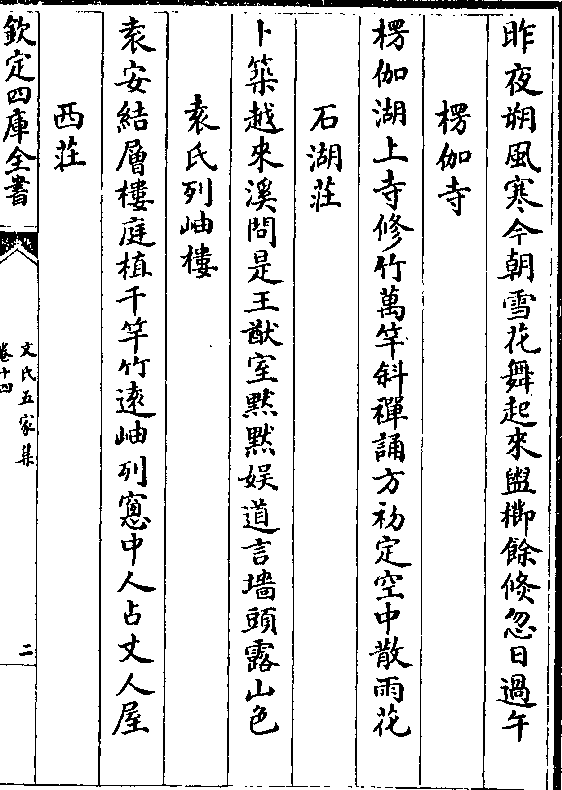 昨夜朔風寒今朝雪花舞起來盥櫛餘倐忽日過午
楞伽寺
楞伽湖上寺修竹萬竿斜禪誦方初定空中散雨花
石湖莊
卜築越來溪問是王猷室黙黙娱道言墻頭露山色
袁氏列岫樓
袁安結層樓庭植千竿竹逺岫列窻中人占丈人屋
西莊
欽定四庫全書
文氏五家集
卷十四
二